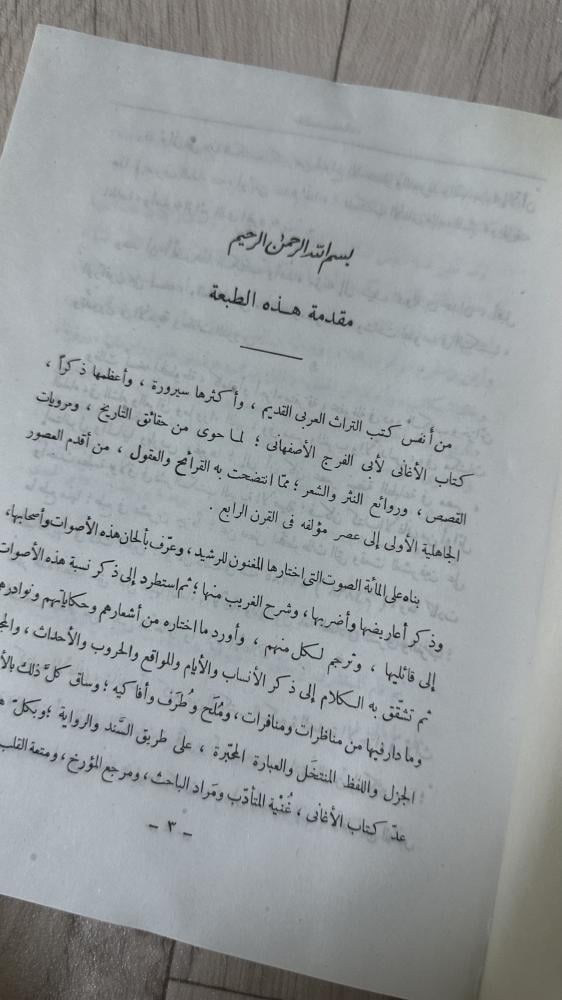 بسم الله الرحمن الرحيم
مقدمة هـذه الطبعة
من أنفس كتب التراث العربى القديم ، وأكثرها سيرورة ، وأعظمها ذكراً ،
كتاب الأغانى لأبى الفرج الأصفهانى ؛ لما حوى من حقائق التاريخ ، ومرويات
القصص ، وروائع النثر والشعر ؛ ممّا انتضحت به القرائح والعقول ، من أقدم العصور
الجاهلية الأولى إلى عصر مؤلفه فى القرن الرابع .
بناه على المائة الصوت التى اختارها المغنون للرشيد ، وعرّف بألحان هذه الأصوات وأصحابها،
وذكر أعاريضها وأضربها ، وشرح الغريب منها ؛ ثم استطرد إلى ذكر نسبة هذه الأصوات
إلى قائليها ، وترجم لكل منهم ، وأورد ما اختاره من أشعارهم وحكاياتهم ونوادرهم
ثم تشقّق به الكلام إلى ذكر الأنساب والأيام والمواقع والحروب والأحداث ،
وما دار فيها من مناظرات ومنافرات ، ومُلَح وطُرَف وأفاكيه ؛ وساق كلَّ ذلك
الجزل واللفظ المنتخَل والعبارة المحبّرة ، على طريق السَّند والرواية ؛ وبكلّ
عدّ كتاب الأغانى ، غُنْية المتأدّب ومَراد الباحث ، ومرجع المؤرخ ، ومتعة القلب
– ٣ –